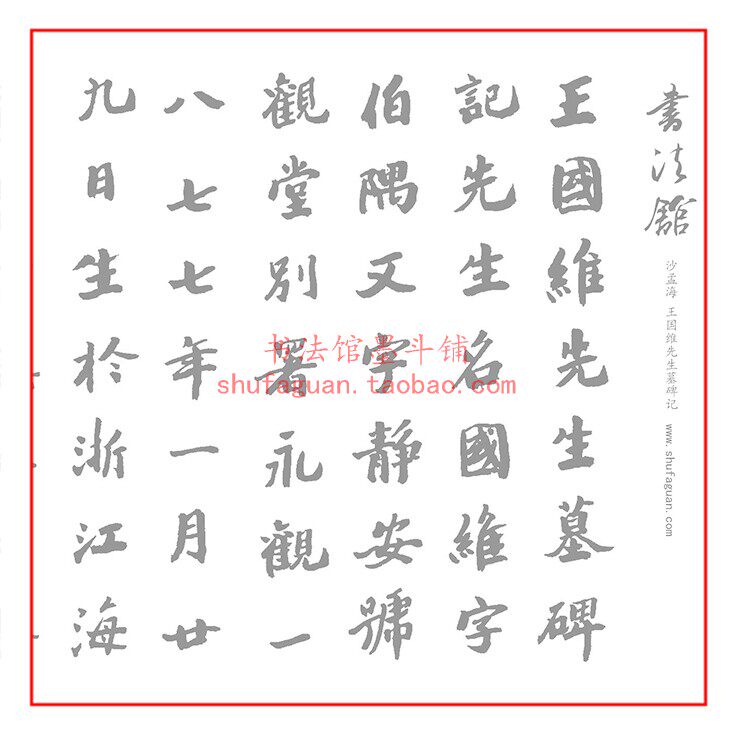 書法館
沙孟海 王国维先生墓碑记 www.shufaguan.com
王國維先生墓碑
記先生名國維字
伯隅又字静安號
觀堂別署永觀一
八七七年一月廿
九日生於浙江海
书法馆墨斗铺
shufaguan.taobao.com